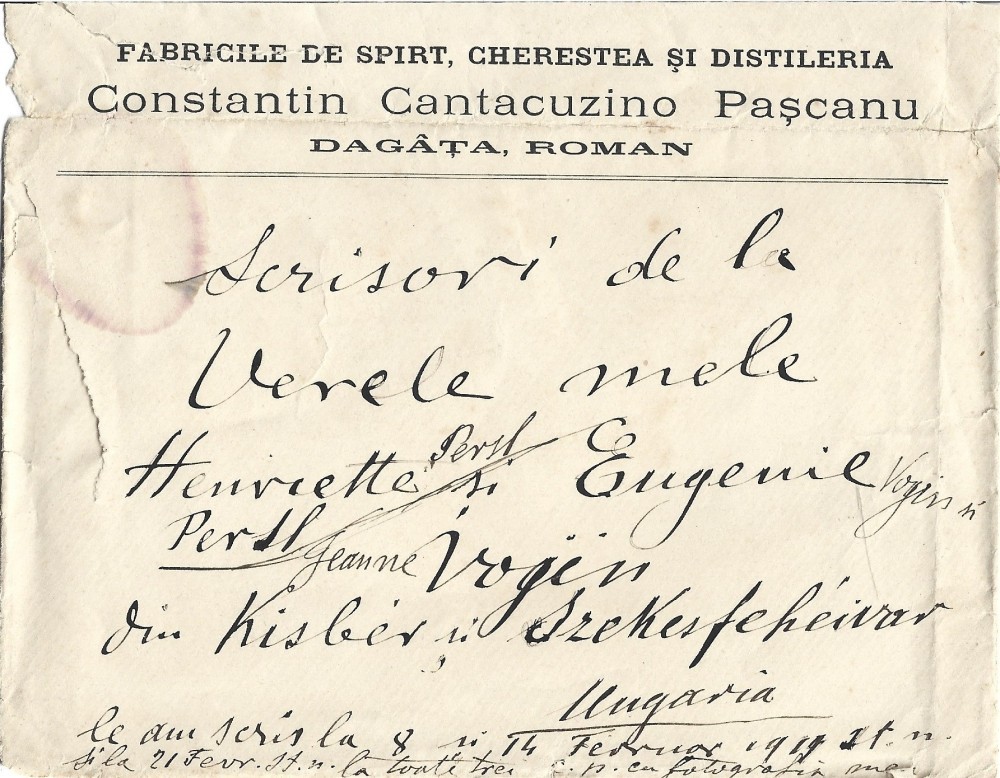 FABRICILE DE SPIRT, CHERESTEA ŞI DISTILERIA
Constantin Cantacuzino Paşcanu
DAGÂŢA, ROMAN
Scrisori de la
Verele mele
Henriette Persl si Eugenie Vogin si
Persl Jeanne Vogin
din Kisbér si Szekesfehéivar
Ungaria
le am scris la 8 si 14 Februar 1919 st. n.
si la 21 Fevr. st. n. la toate trei c. p. cu fotografia